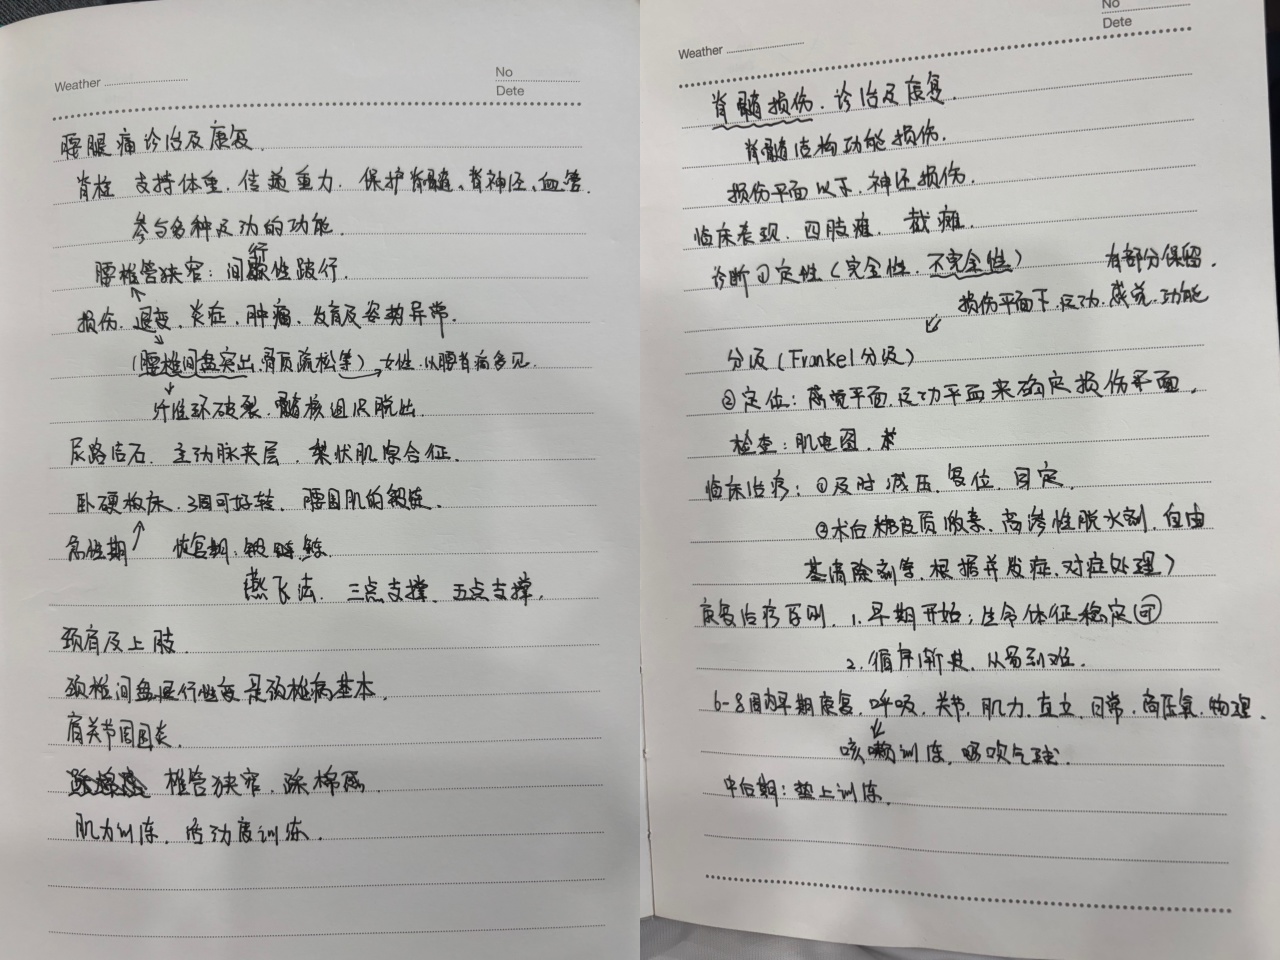 Weather
No
Dete
腰腿痛诊治及康复.
脊柱 支持体重.传递重力. 保护脊髓、脊神经、血管.
参与多种运动的功能.
腰椎管狭窄:间歇性跛行.
行
损伤.退变、炎症、肿瘤、发育及姿势异常.
(腰椎间盘突出、骨质疏松等)女性.以腰背痛多见.
纤维环破裂.髓核组织脱出.
尿路结石. 主动脉夹层. 梨状肌综合征.
卧硬板床.3周可好转、腰围肌的锻炼.
急性期 恢复期:锻炼
燕飞法. 三点支撑、五点支撑.
颈肩及上肢.
颈椎间盘退行性变是颈椎病基本.
肩关节周围炎.
椎管狭窄.踩棉感
肌力训练、活动度训练.
Weather
No
Dete
脊髓损伤.诊治及康复.
脊髓结构功能损伤.
损伤平面以下.神经损伤.
临床表现.四肢瘫. 截瘫.
诊断①定性(完全性.不完全性) 有部分保留.
损伤平面下.运动.感觉.功能
分级(Frankel分级)
②定位:感觉平面.运动平面来确定损伤平面.
检查:肌电图.
临床治疗:①及时减压.复位.固定.
②术后糖皮质激素.高渗性脱水剂.自由
基清除剂等.根据并发症.对症处理)
康复治疗原则. 1.早期开始;生命体征稳定即可
2.循序渐进.从易到难.
6-8周内早期康复.呼吸.关节.肌力.直立.日常.高压氧.物理.
咳嗽训练.吸吹气球.
中后期:垫上训练.